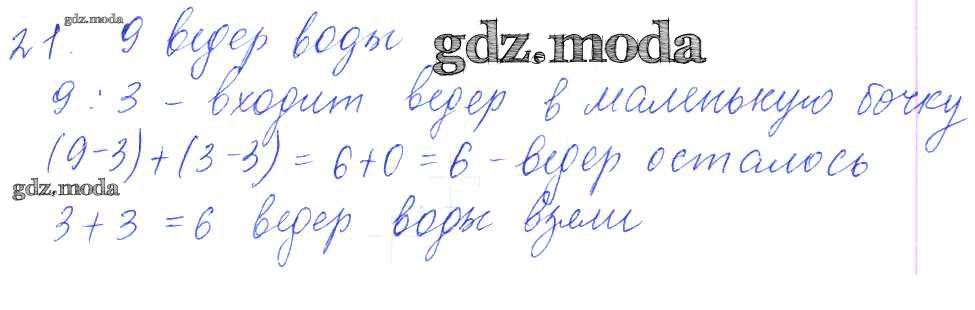 gdz.moda
21. 9 ведер воды gdz.moda
9 : 3 - входит ведер в маленькую бочку
(9-3)+(3-3) = 6+0 = 6 - ведер осталось
gdz.moda
3 + 3 = 6 ведер воды взяли